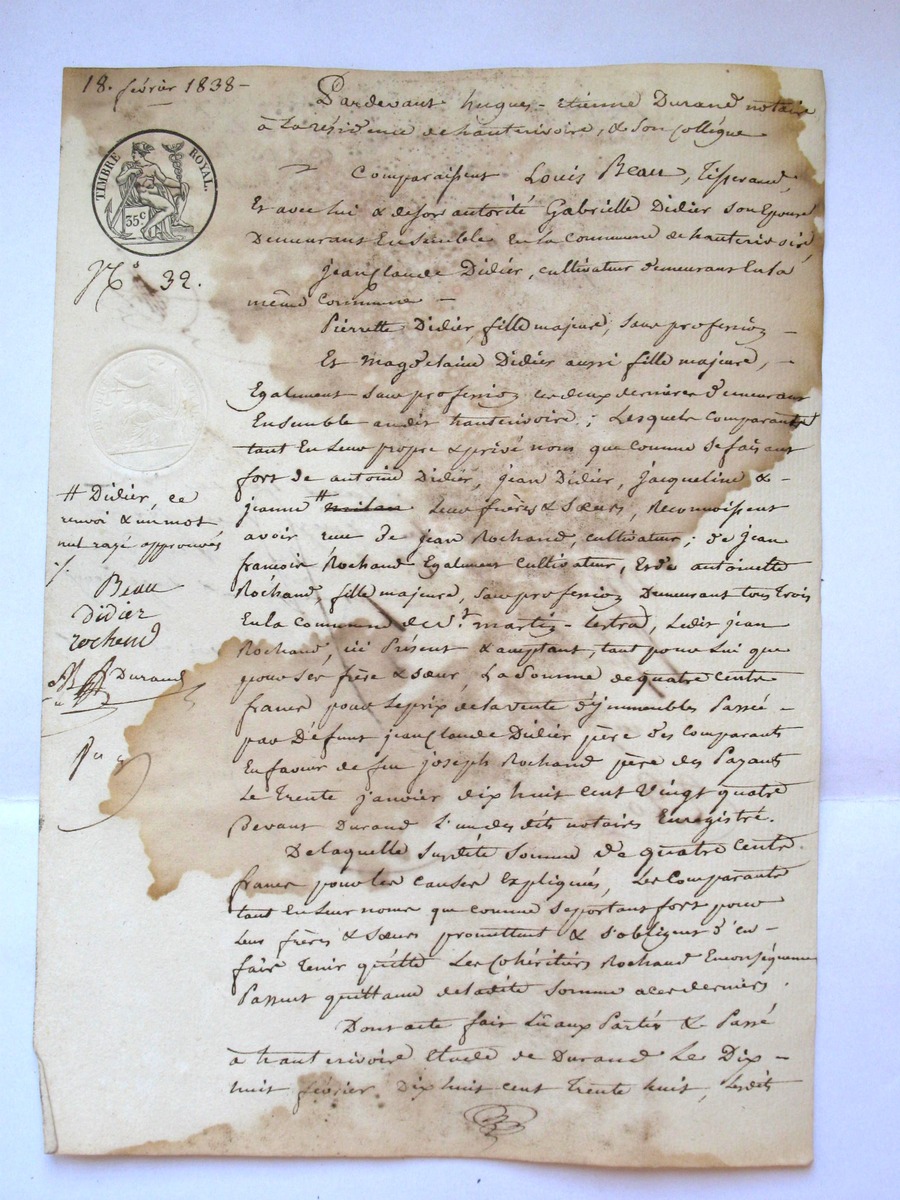 18. février 1838 -
Pardevant hugues - etienne Durand notaire
à la résidence de hauterivoire, & son collègue
TIMBRE ROYAL.
35 c
Comparaissent Louis Beau, tisserand,
Et avec lui & de son autorité Gabrielle Didier son Epouse
Demeurant Ensemble En la Commune de hauterivoire,
N.° 32.
jean Claude Didier, cultivateur demeurant En la
même Commune -
Pierrette Didier, fille majeure, sans profession -
Et Magdelaine Didier aussi fille majeure, -
Egalement sans profession les deux dernières demeurant
Ensemble audit hauterivoire ; Lesquels Comparants
tant En leur propre & privé noms que comme se faisant
fort de antoine Didier, jean Didier, jacqueline &
jeanne # Leurs frères & Sœurs, Reconnoissent
avoir reçu de jean Rochand, cultivateur ; de jean
francois Rochand Egalement Cultivateur, Et de antoinette
Rochand, fille majeure, sans profession Demeurant tous trois
En la Commune de St. martin - lestra, Ledit jean
Rochand, ici Présent & acceptant, tant pour Lui que
pour ses frère & sœur, La Somme de quatre cents
francs pour le prix de la vente d'immeubles Passée -
par Défunt jean Claude Didier père des Comparants
En faveur de feu joseph Rochand père des Payants
Le Trente janvier dix huit cent Vingt quatre
Devant Durand l'un des dits notaires Enregistré.
De laquelle Susdite Somme de quatre Cents
francs pour les causes Expliquées, Les Comparants
tant En leur noms que comme se portant fort pour
Leurs frères & sœurs promettent & s'obligent d'en -
faire tenir quitte Les Cohéritiers Rochand En conséquence
Passent quittance de ladite Somme a ces derniers.
Dont acte fait Lu aux Parties & Passé
à hauterivoire Etude de Durand Le Dix -
huit février Dix huit cent trente huit, Lesdits
# Didier, ce
renvoi & un mot
nul rayé approuvés
Beau
Didier
rochand
Durand